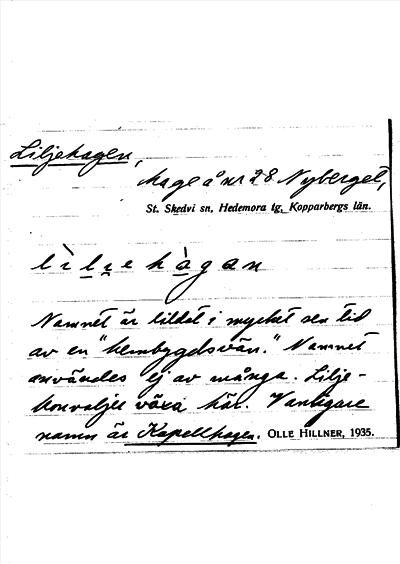 Liljehagen,
hage å nr 28 Nyberget,
St. Skedvi sn, Hedemora tg, Kopparbergs län.
lìljehàgan
Namnet är bildat i mycket sen tid
av en "hembygdsvän." Namnet
användes ej av många. Lilje-
konvaljer växa här. Vanligare
namn är Kapellhagen. OLLE HILLNER, 1935.